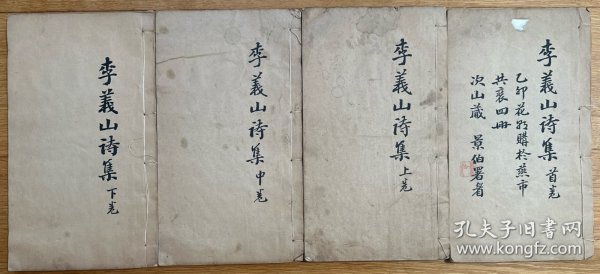 李義山诗集 首卷
乙卯花朝購於燕市
共裒四冊
次山藏 景伯署耑
李義山诗集 上卷
李義山诗集 中卷
李義山诗集 下卷
孔夫子旧书网
www.kongfz.com